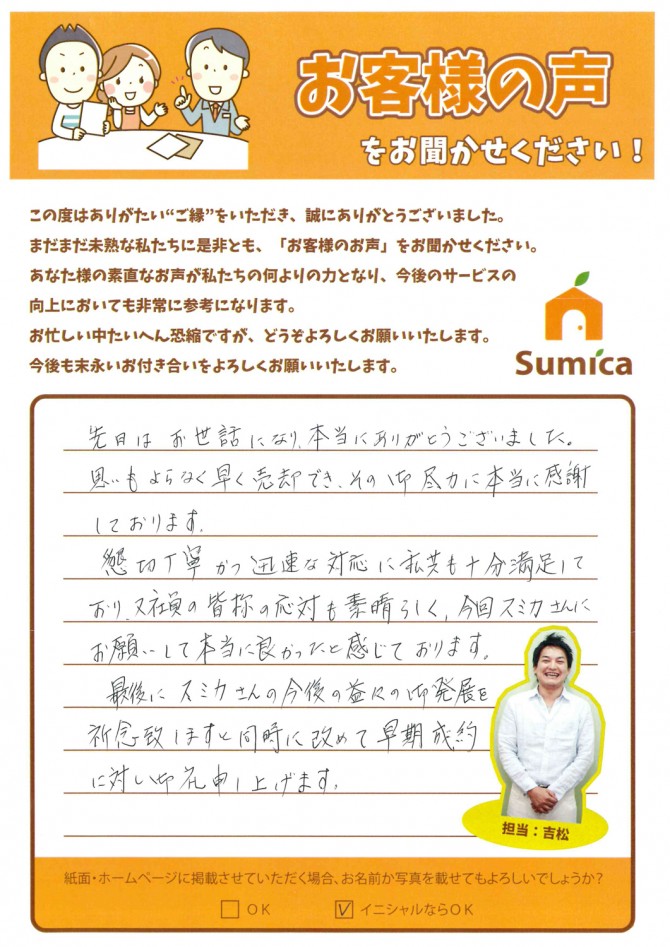 お客様の声
をお聞かせください！
この度はありがたい“ご縁”をいただき、誠にありがとうございました。
まだまだ未熟な私たちに是非とも、「お客様のお声」をお聞かせください。
あなた様の素直なお声が私たちの何よりの力となり、今後のサービスの
向上においても非常に参考になります。
お忙しい中たいへん恐縮ですが、どうぞよろしくお願いいたします。
今後も末永いお付き合いをよろしくお願いいたします。
Sumica
先日は お世話になり、本当にありがとうございました。
思いもよらなく早く売却でき、その御尽力に本当に感謝
しております。
懇切丁寧かつ迅速な対応に私共も十分満足して
おり、又社員の皆様の応対も素晴らしく、今回スミカさんに
お願いして本当に良かったと感じております。
最後にスミカさんの今後の益々の御発展を
祈念致しますと同時に改めて早期成約
に対し御礼申し上げます。
担当：吉松
紙面・ホームページに掲載させていただく場合、お名前か写真を載せてもよろしいでしょうか？
□ OK ☑ イニシャルならOK